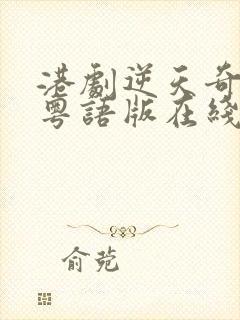 港劇逆天奇
粵語版在綫
俞菀